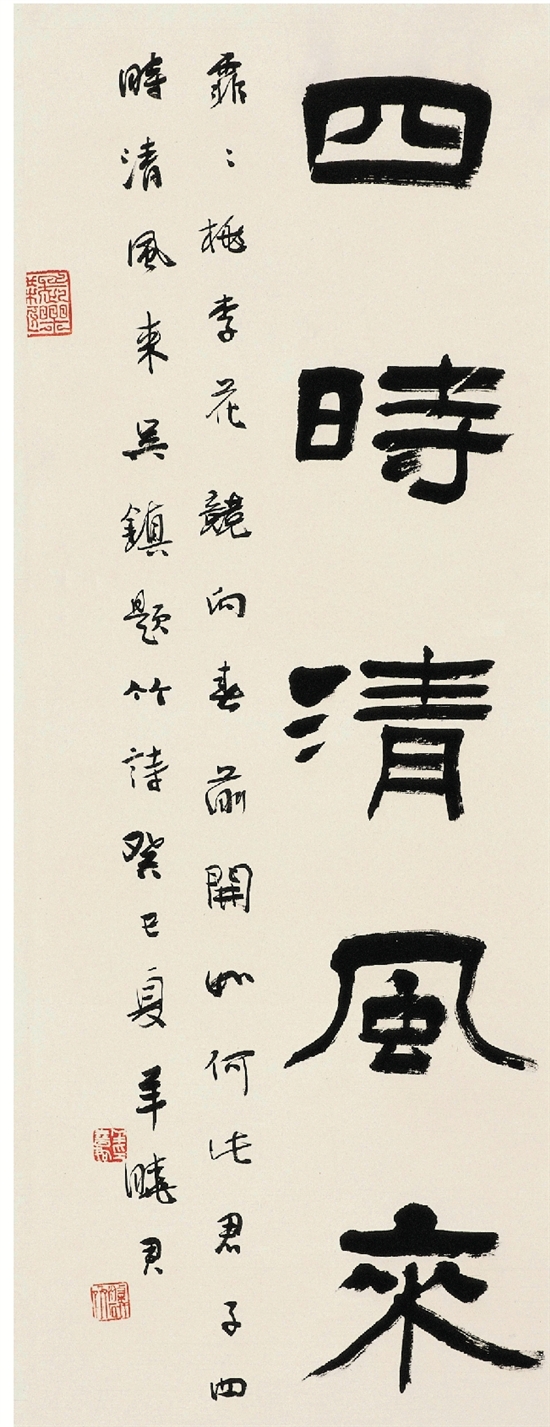 四時清風來
霏〻桃李花競向春前開如何此君子四
時清風来吴鎮題竹詩癸巳夏羊曉君